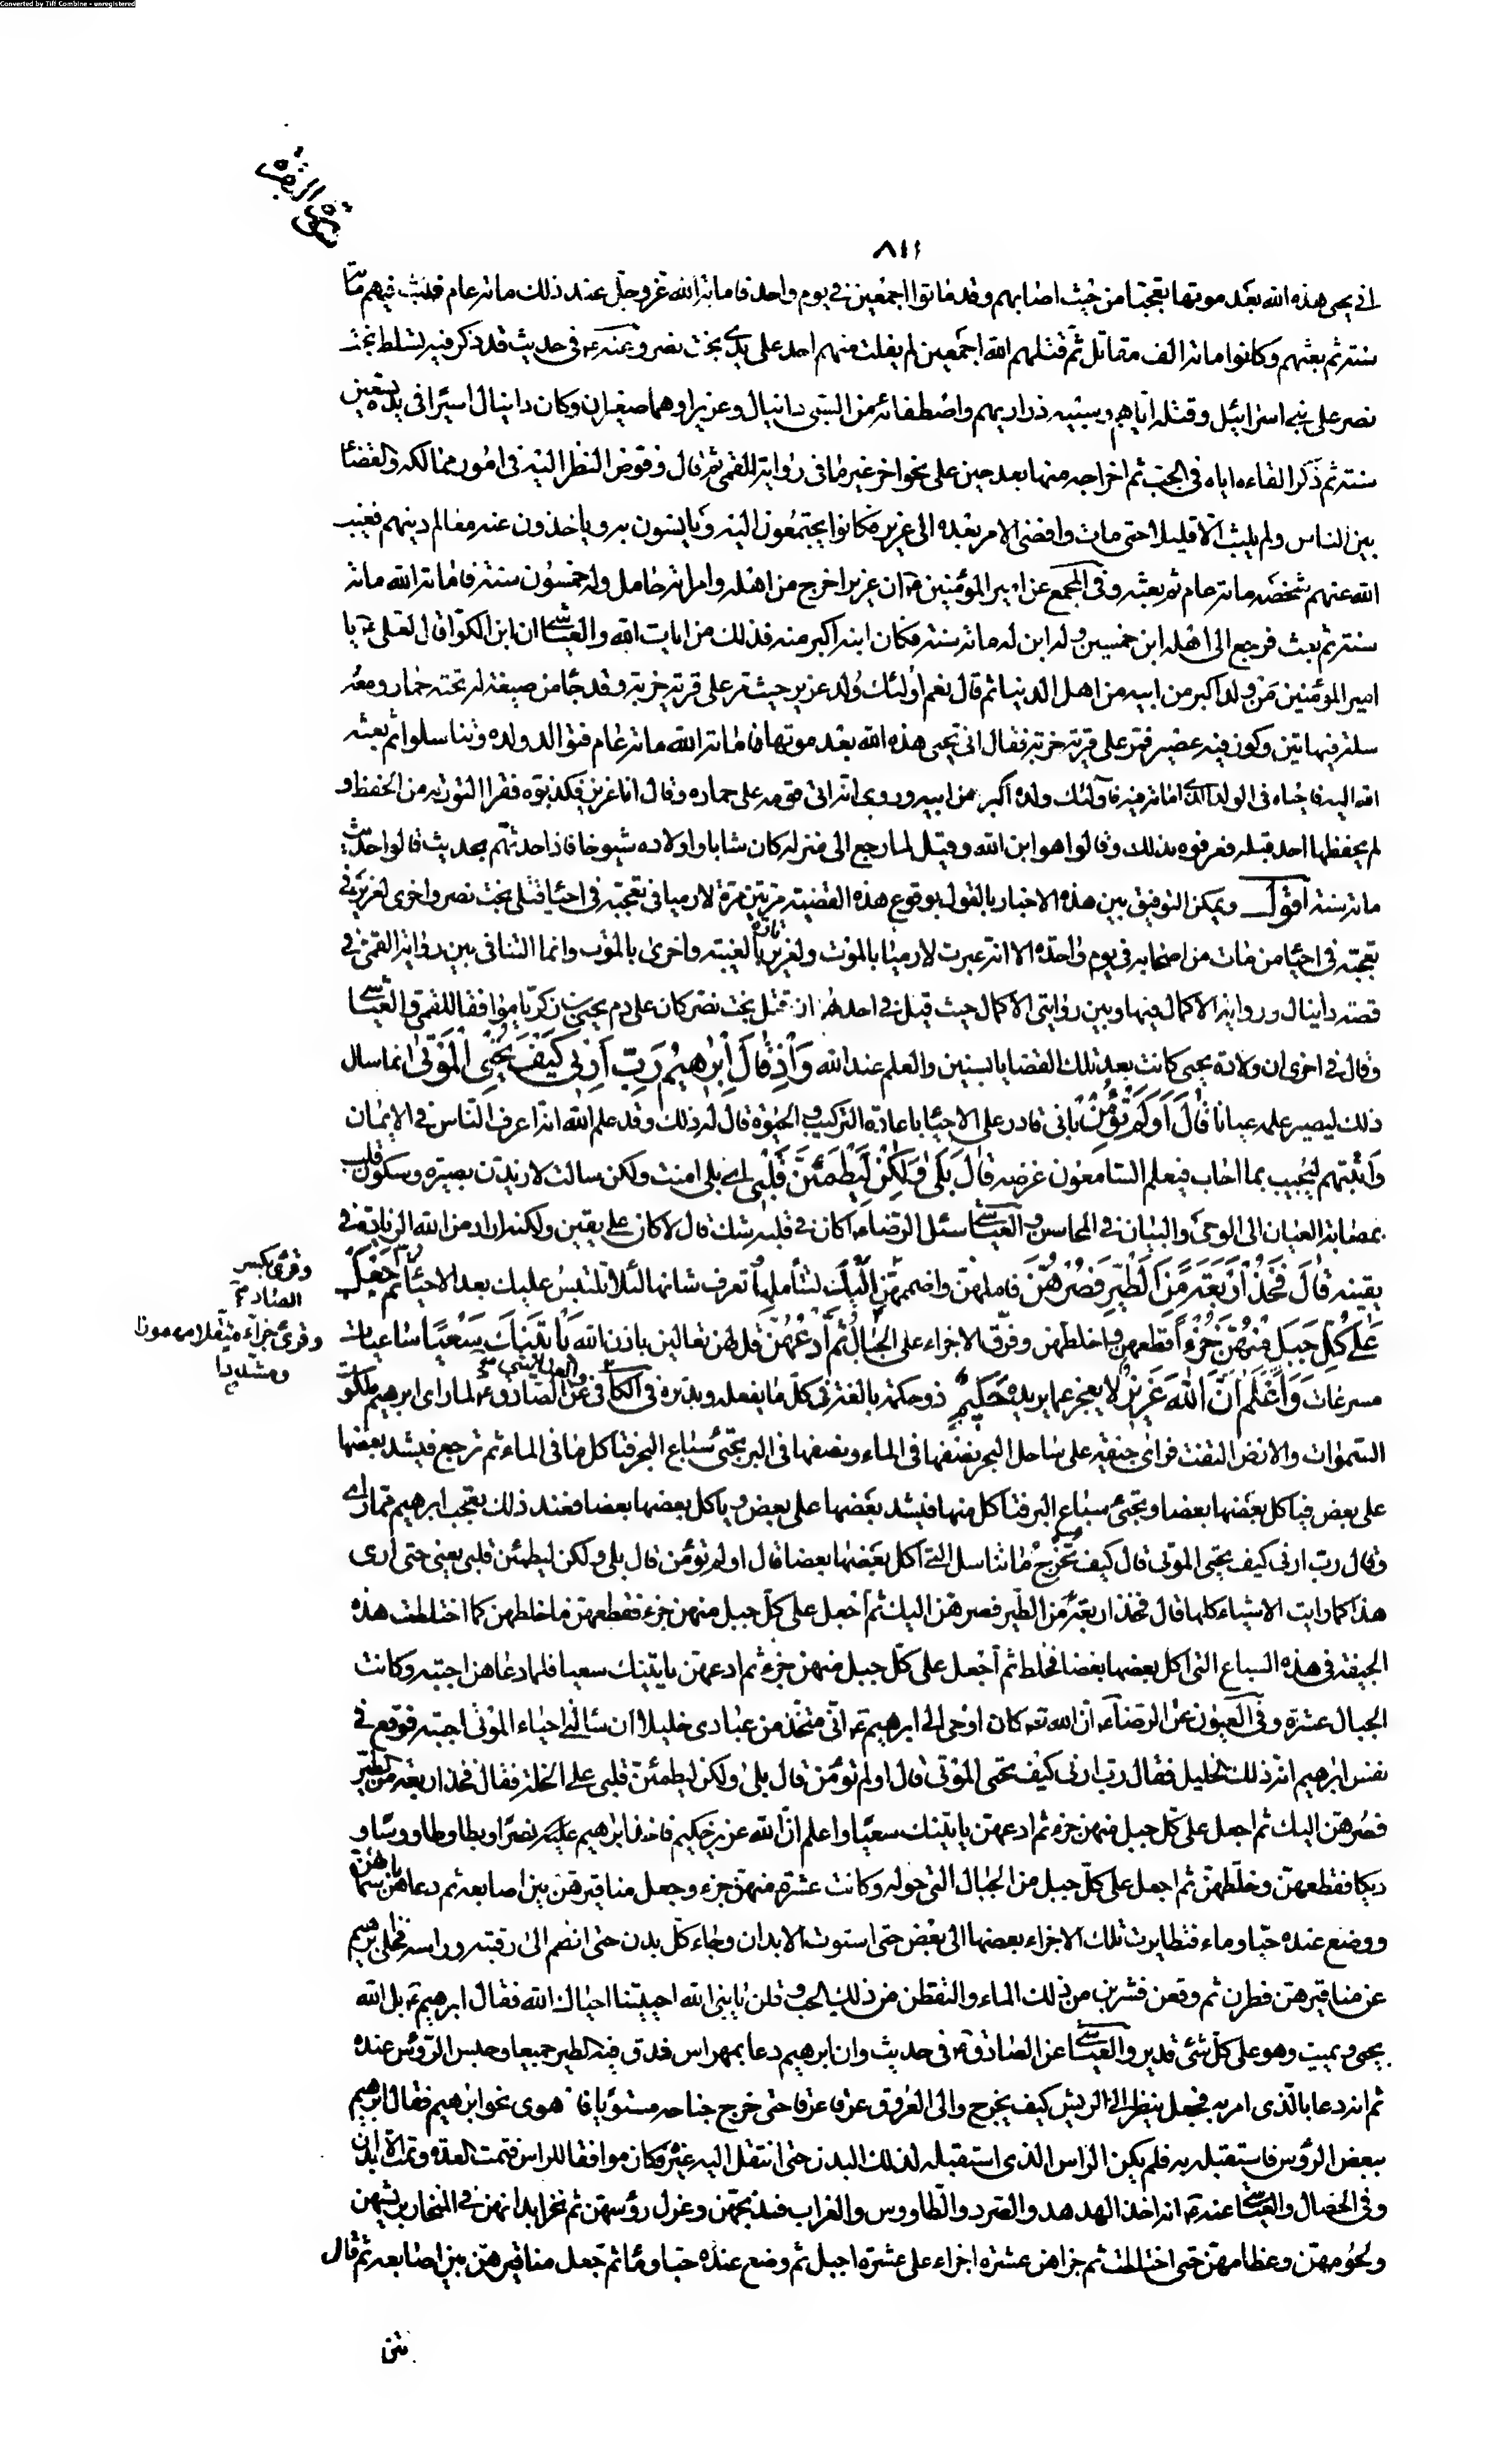 Converted by Tiff Combine - unregistered
سورة البقرة
٨١١
انى يحيى هذه الله بعد موتها تعجبا من حيث اصابهم وقد ماتوا اجمعين فى يوم واحد فاماته الله عز وجل عند ذلك مائة عام فلبث فيهم مائة
سنة ثم بعثهم وكانوا مائة الف مقاتل ثم قتلهم الله اجمعين لم يفلت منهم احد على يدى بخت نصر وعنه ع فى حديث قد ذكر فيه تسلط بخت
نصر على بنى اسرائيل وقتله اياهم وسبيه ذراريهم واصطفائه من السبى دانيال وعزيرا وهما صغيران وكان دانيال اسيرا فى يده تسعين
سنة ثم ذكر القاءه اياه فى الجب ثم اخراجه منها بعد حين على نحو اخر غير ما فى رواية القمى ثم قال وفوض النظر اليه فى امور ممالكه والقضاء
بين الناس ولم يلبث الا قليلا حتى مات وافضى الامر بعده الى عزير فكانوا يجتمعون اليه ويانسون به وياخذون عنه معالم دينهم فغيب
الله عنهم شخصه مائة عام ثم بعثه وفى المجمع عن امير المؤمنين ع ان عزيرا خرج من اهله وامراته حامل وله خمسون سنة فاماته الله مائة
سنة ثم بعث فرجع الى اهله ابن خمسين وله ابن له مائة سنة فكان ابنه اكبر منه فذلك من ايات الله والعياشى ان ابن الكوا قال لعلى ع يا
امير المؤمنين من ولد اكبر من ابيه من اهل الدنيا ثم قال نعم اولئك ولد عزير حيث مر على قرية خربة وقد جاء من ضيعة له تحته حمار ومعه
سلة فيها تين وكوز فيه عصير فمر على قرية خربة فقال انى يحيى هذه الله بعد موتها فاماته الله مائة عام فتوالد ولده وتناسلوا ثم بعثه
الله اليه فاحياه فى المولد الذى اماته فيه فاولئك ولده اكبر من ابيه وروى انه اتى قومه على حماره وقال انا عزير فكذبوه فقرا التورية من الحفظ و
لم يحفظها احد قبله فعرفوه بذلك وقالوا هو ابن الله وقيل لما رجع الى منزله كان شابا واولاده شيوخا فاذا حدثهم بحديث قالوا حديث
مائة سنة اقول ويمكن التوفيق بين هذه الاخبار بالقول بوقوع هذه القضية مرتين مرة لارميا فى تعجبه فى احياء قتلى بخت نصر واخرى لعزير فى
تعجبه فى احياء من مات من اصحابه فى يوم واحد الا انه عبرت لارميا بالموت ولعزير تارة بالغيبة واخرى بالموت وانما التنافى بين رواية القمى فى
قصة دانيال ورواية الاكمال فيها وبين روايتى الاكمال حيث قيل فى احدهما ان قتل بخت نصر كان على دم يحيى بن زكريا موافقا للقمى والعياشى
وقال فى اخرى ان ولادة يحيى كانت بعد تلك القضايا بسنين والعلم عند الله وَاِذْ قَالَ اِبْرٰهِيمُ رَبِّ اَرِنِى كَيْفَ تُحْيِى الْمَوْتٰى انما سال
ذلك ليصير علمه عيانا قَالَ اَوَلَمْ تُؤْمِنْ بانى قادر على الاحياء باعادة التركيب والحيوة قال له ذلك وقد علم الله انه اعرف الناس فى الايمان
واثبتهم ليجيب بما اجاب فيعلم السامعون غرضه قَالَ بَلٰى وَلٰكِنْ لِيَطْمَئِنَّ قَلْبِى اى بلى امنت ولكن سالت لازيد من بصيرة وسكون قلب
بمضامة العيان الى الوحى والبيان فى المحاسن والعياشى سئل الرضا ع اكان فى قلبه شك قال لا كان على يقين ولكنه اراد من الله الزيادة فى
يقينه قَالَ فَخُذْ اَرْبَعَةً مِنَ الطَّيْرِ فَصُرْهُنَّ فاملهن واضممهن اِلَيْكَ لتتاملها وتعرف شانها لئلا تلتبس عليك بعد الاحياء ثُمَّ اجْعَلْ
وقرئ بكسر
الصاد
عَلٰى كُلِّ جَبَلٍ مِنْهُنَّ جُزْءًا فقطعهن واخلطهن وفرق الاجزاء على الجبال ثُمَّ ادْعُهُنَّ قل لهن تعالين باذن الله يَاْتِينَكَ سَعْيًا ساعيات
وقرئ جزاء مثقلا مهموزا
ومشددا
مسرعات وَاعْلَمْ اَنَّ اللّٰهَ عَزِيزٌ لا يعجز عما يريده حَكِيمٌ ذو حكمة بالغة فى كل ما يفعله ويدبره فى الكافى والعياشى عن الصادق ع لما راى ابرهيم ملكوت
السموات والارض التفت فراى جيفة على ساحل البحر نصفها فى الماء ونصفها فى البر تجئ سباع البحر فتاكل ما فى الماء ثم ترجع فيشد بعضها
على بعض فياكل بعضها بعضا وتجئ سباع البر فتاكل منها فيشد بعضها على بعض وياكل بعضها بعضا فعند ذلك تعجب ابرهيم مما راى
وقال رب ارنى كيف تحيى الموتى قال كيف تخرج ما تناسل التى اكل بعضها بعضا قال اولم تؤمن قال بلى ولكن ليطمئن قلبى يعنى حتى ارى
هذا كما رايت الاشياء كلها قال فخذ اربعة من الطير فصرهن اليك ثم اجعل على كل جبل منهن جزء فقطعهن فاخلطهن كما اختلطت هذه
الجيفة فى هذه السباع التى اكل بعضها بعضا فخلط ثم اجعل على كل جبل منهن جزء ثم ادعهن ياتينك سعيا فلما دعاهن اجبنه وكانت
الجبال عشرة وفى العيون عن الرضا ع ان الله تع كان اوحى الى ابرهيم ع انى متخذ من عبادى خليلا ان سالنى احياء الموتى اجبته فوقع فى
نفس ابرهيم انه ذلك الخليل فقال رب ارنى كيف تحيى الموتى قال اولم تؤمن قال بلى ولكن ليطمئن قلبى على الخلة فقال فخذ اربعة من الطير
فصرهن اليك ثم اجعل على كل جبل منهن جزء ثم ادعهن ياتينك سعيا واعلم ان الله عزيز حكيم فاخذ ابراهيم عليه نسرا وبطا وطاووسا و
ديكا فقطعهن وخلطهن ثم اجعل على كل جبل من الجبال التى حوله وكانت عشرة منهن جزء وجعل مناقيرهن بين اصابعه ثم دعاهن باسمائهن
ووضع عنده حبا وماء فتطايرت تلك الاجزاء بعضها الى بعض حتى استوت الابدان وجاء كل بدن حتى انضم الى رقبته وراسه فخلى ابرهيم
عن مناقيرهن فطرن ثم وقعن فشربن من ذلك الماء والتقطن من ذلك الحب وقلن يا نبى الله احييتنا احياك الله فقال ابرهيم ع بل الله
يحيى ويميت وهو على كل شئ قدير والعياشى عن الصادق ع فى حديث وان ابرهيم دعا بمهراس فدق فيه الطير جميعا وحبس الرؤس عنده
ثم انه دعا بالذى امر به فجعل ينظر الى الريش كيف يخرج والى العروق عرقا عرقا حتى خرج جناحه مستويا فاهوى نحو ابرهيم فقال ابرهيم
ببعض الرؤس فاستقبله به فلم يكن الراس الذى استقبله لذلك البدن حتى انتقل اليه غيره فكان موافقا للراس فتمت العدة وتمت الابدان
وفى الخصال والعياشى عنه ع انه اخذ الهدهد والصرد والطاووس والغراب فذبحهن وعزل رؤسهن ثم نخر ابدانهن فى المنخاز بريشهن
ولحومهن وعظامهن حتى اختلطت ثم جزاهن عشرة اجزاء على عشرة اجبل ثم وضع عنده حبا وماء ثم جعل مناقيرهن بين اصابعه ثم قال